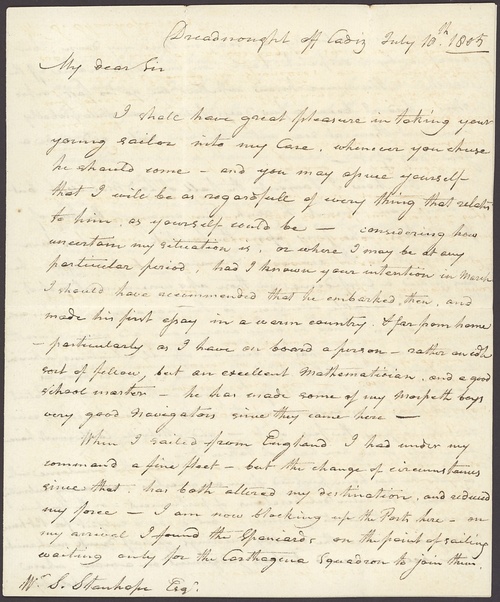 Dreadnought off Cadiz July 10th. 1805
My dear Sir
I shall have great pleasure in taking your
young sailor into my Care, whenever you chuse
he should come - and you may assure yourself
that I will be as regardfull of every thing that relates
to him, as yourself could be — considering how
uncertain my situation is, or where I may be at any
particular period, had I known your intention in March
I should have recommended that he embarked then, and
made his first essay in a warm country, & far from home
- particularly as I have on board a person - rather an odd
sort of fellow, but an excellent Mathematician, and a good
school master - he has made some of my Morpeth boys
very good Navigators since they came here —
When I sailed from England I had under my
command a fine fleet - but the change of circumstances
since that, has both altered my destination, and reduced
my force - I am now blocking up the Port here - on
my arrival I found the Spaniards, on the point of sailing
waiting only for the Carthagena Squadron to join them.
W. S. Stanhope Esqr.